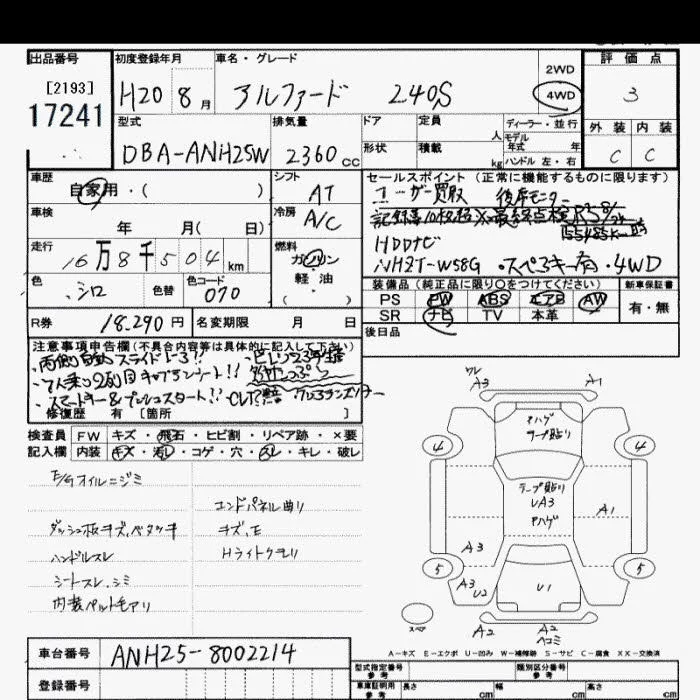 出品番号
[2193]
17241
初度登録年月
H20 8月
車名・グレード
アルファード 240S
2WD
4WD
評価点
3
外装 内装
C C
型式
DBA-ANH25W
排気量
2360 cc
ドア
形状
定員
人
積載
kg
ディーラー・並行
モデル
年式 年
ハンドル 左・右
車歴
自家用・( )
車検
年 月( 日)
走行
16万8千504 km
色
シロ
色替
色コード
070
シフト
AT
冷房
A/C
燃料
ガソリン
軽・油
( )
R券
18,290円
名変期限
月 日
セールスポイント (正常に機能するものに限ります)
ユーザー買取 後席モニター
HDDナビ
NHZT-W58G ・スペアキー有・4WD
装備品(純正品に限り○をつけてください)
PS PW ABS エアB AW
SR ナビ TV 本革
新車保証書
有・無
後日品
注意事項申告欄(不具合内容等は具体的に記入して下さい)
・両側自動スライドドアー!!
・7人乗り2列目キャプテンシート!!
・スマートキー&プッシュスタート!!
修復歴 有 [箇所 ]
検査員
記入欄
FW キズ・飛石・ヒビ割・リペア跡・×要
内装 キズ・汚レ・コゲ・穴・スレ・キレ・破レ
E/Gオイルニジミ
ダッシュ板キズ、ベタツキ
ハンドルスレ
シートスレ、シミ
内装ペットモアリ
エンドパネル曲り
キズ、E
Hライトクモリ
ワレ
A3
A1
ハゲ
テープ貼り
4
4
テープ貼り
UA3
ハゲ
A1
A3
5
5
A3
U2
U1
スペア
A2
A2
ヘコミ
A-キズ E-エクボ U-凹み W-補修跡 S-サビ C-腐食 XX-交換済
車台番号
ANH25-8002214
登録番号
型式指定番号
参考
類別区分番号
参考
車庫証明用
参考
長さ cm
幅 cm
高さ cm